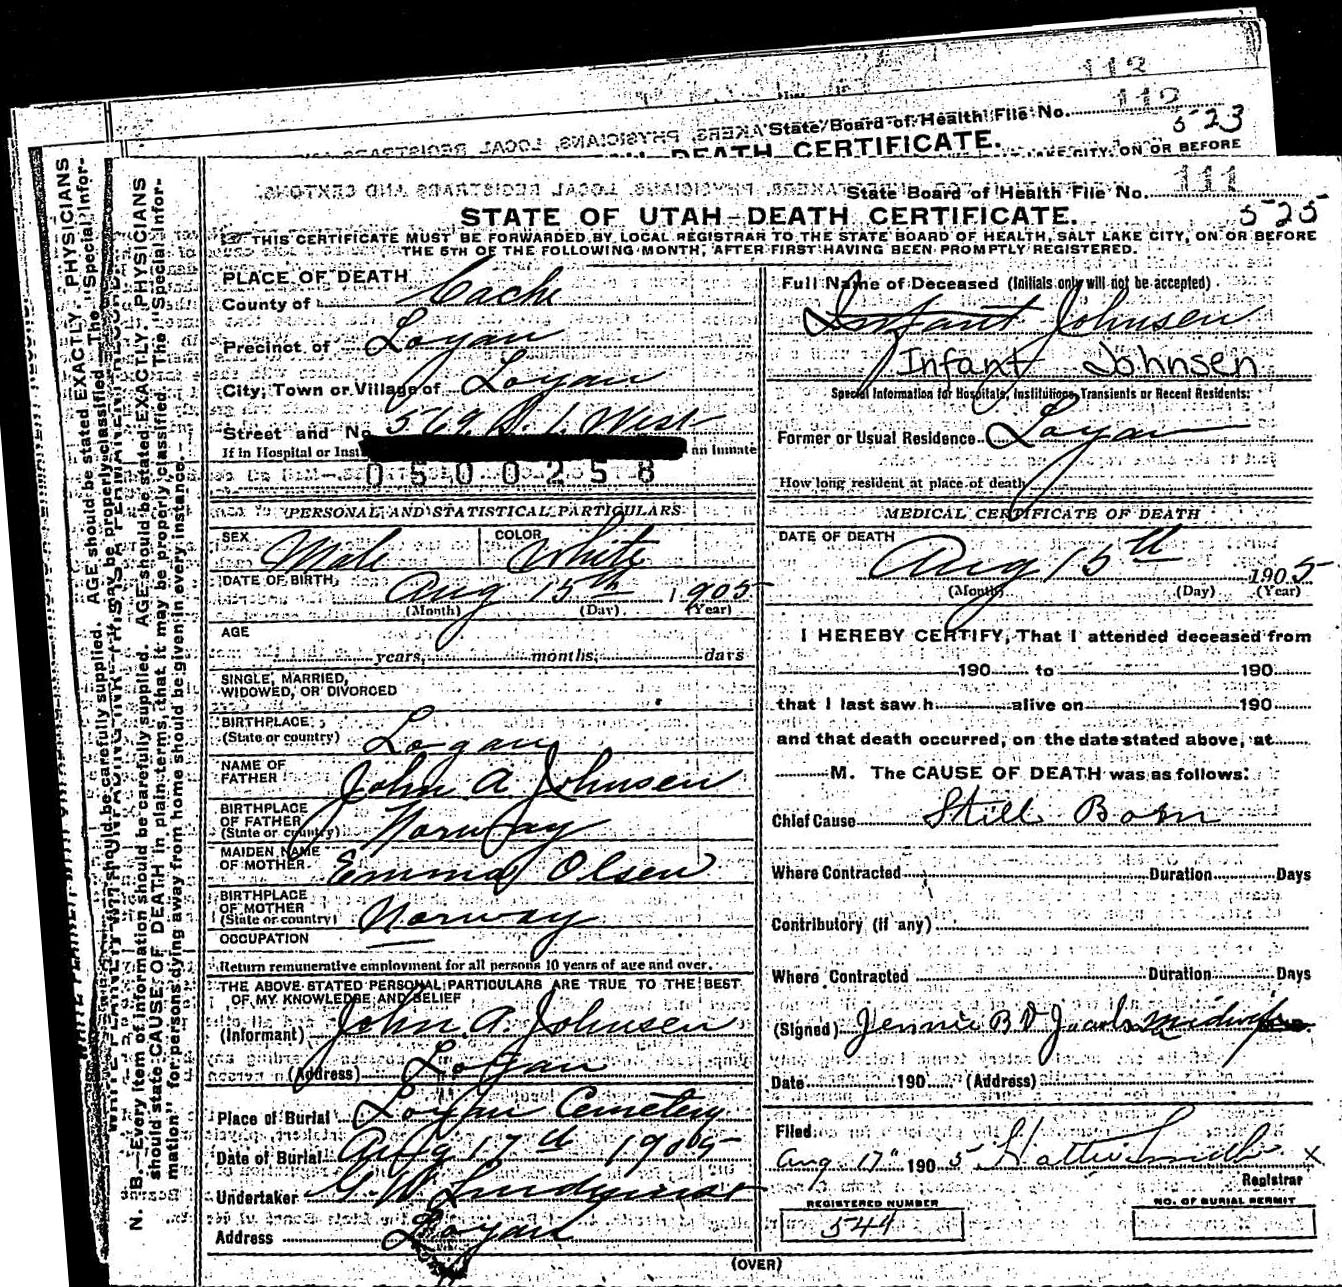 112
112
State Board of Health File No.
523
DEATH CERTIFICATE.
LAKE CITY, ON OR BEFORE
State Board of Health File No. 111
STATE OF UTAH—DEATH CERTIFICATE. 525
THIS CERTIFICATE MUST BE FORWARDED BY LOCAL REGISTRAR TO THE STATE BOARD OF HEALTH, SALT LAKE CITY, ON OR BEFORE
THE 5TH OF THE FOLLOWING MONTH, AFTER FIRST HAVING BEEN PROMPTLY REGISTERED.
PLACE OF DEATH
County of Cache
Precinct of Logan
City, Town or Village of Logan
Street and No. 569 N. 1. West
If in Hospital or Inst an Inmate
0500258
PERSONAL AND STATISTICAL PARTICULARS
SEX Male COLOR White
DATE OF BIRTH Aug 15th 1905
(Month) (Day) (Year)
AGE
years, months, days
SINGLE, MARRIED,
WIDOWED, OR DIVORCED
BIRTHPLACE
(State or country) Logan
NAME OF
FATHER John A Johnsen
BIRTHPLACE
OF FATHER
(State or country) Norway
MAIDEN NAME
OF MOTHER Emma Olsen
BIRTHPLACE
OF MOTHER
(State or country) Norway
OCCUPATION —
Return remunerative employment for all persons 10 years of age and over.
THE ABOVE STATED PERSONAL PARTICULARS ARE TRUE TO THE BEST
OF MY KNOWLEDGE AND BELIEF
(Informant) John A. Johnsen
(Address) Logan
Place of Burial Logan Cemetery
Date of Burial Aug 17th 1905
Undertaker G. W. Lindquist
Address Logan
Full Name of Deceased (Initials only will not be accepted)
Infant Johnsen
Infant Johnsen
Special Information for Hospitals, Institutions, Transients or Recent Residents:
Former or Usual Residence Logan
How long resident at place of death
MEDICAL CERTIFICATE OF DEATH
DATE OF DEATH Aug 15th 1905
(Month) (Day) (Year)
I HEREBY CERTIFY, That I attended deceased from
190 to 190
that I last saw h alive on 190
and that death occurred, on the date stated above, at
M. The CAUSE OF DEATH was as follows:
Chief Cause Still Born
Where Contracted Duration Days
Contributory (if any)
Where Contracted Duration Days
(Signed) Jennie B Jacobs midwife
Date 190 (Address)
Filed
Aug 17" 1905 Hattie Smith X
Registrar
REGISTERED NUMBER
544
NO. OF BURIAL PERMIT
(OVER)
N. B.—Every item of information should be carefully supplied. AGE should be stated EXACTLY. PHYSICIANS
should state CAUSE OF DEATH in plain terms, that it may be properly classified. The "Special Infor-
mation" for persons dying away from home should be given in every instance.